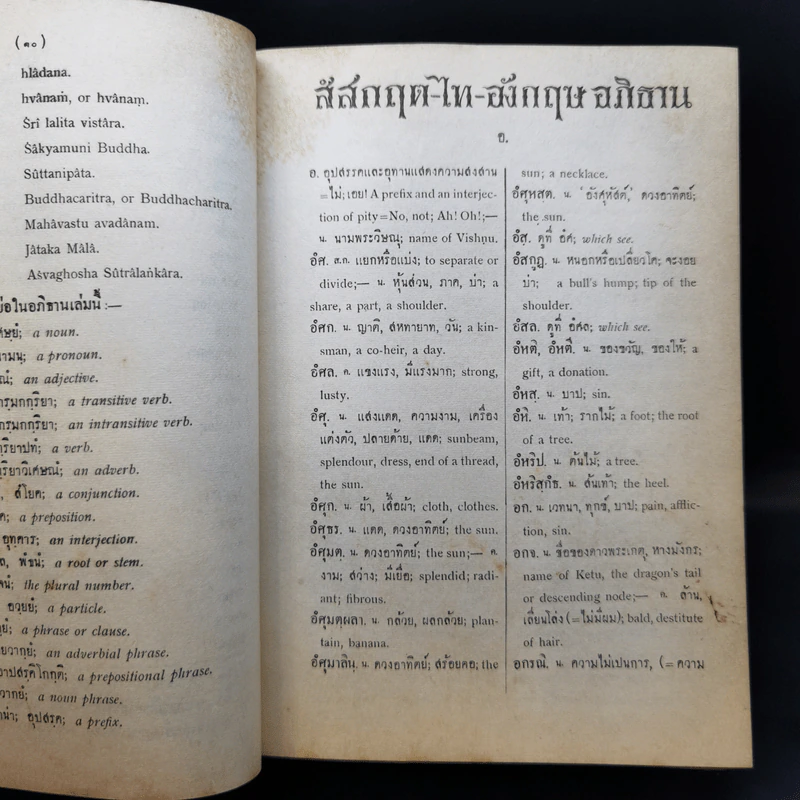 (๓๐)
hlâdana.
hvânaṁ, or hvânaṃ.
Śrî lalita vistâra.
Śâkyamuni Buddha.
Sûttanipâta.
Buddhacaritra, or Buddhacharitra.
Mahâvastu avadânam.
Jâtaka Mâlâ.
Aśvaghosha Sûtrâlaṅkâra.
ย่อในอภิธานเล่มนี้:—
a noun.
a pronoun.
an adjective.
a transitive verb.
an intransitive verb.
a verb.
an adverb.
a conjunction.
a preposition.
อุทฺคาร; an interjection.
a root or stem.
the plural number.
อวฺยยํ; a particle.
a phrase or clause.
an adverbial phrase.
a prepositional phrase.
a noun phrase.
อุปสรฺค; a prefix.
สํสกฤต-ไท-อังกฤษ อภิธาน
อ.
อ. อุปสรรคและอุทานแสดงความสงสาน
=ไม่; เอย! A prefix and an interjec-
tion of pity=No, not; Ah! Oh!;—
น. นามพระวิษณุ; name of Vishṇu.
อํศ. ส.ก. แยกหรือแบ่ง; to separate or
divide;— น. หุ้นส่วน, ภาค, บ่า; a
share, a part, a shoulder.
อํศก. น. ญาติ, สหทายาท, วัน; a kin-
sman, a co-heir, a day.
อํศล. ค. แขงแรง, มีแรงมาก; strong,
lusty.
อํศุ. น. แสงแดด, ความงาม, เครื่อง
แต่งตัว, ปลายด้าย, แดด; sunbeam,
splendour, dress, end of a thread,
the sun.
อํศุก. น. ผ้า, เสื้อผ้า; cloth, clothes.
อํศุธร. น. แดด, ดวงอาทิตย์; the sun.
อํศุมตฺ. น. ดวงอาทิตย์; the sun;— ค.
งาม; สว่าง; มีเยื่อ; splendid; radi-
ant; fibrous.
อํศุมตฺผลา. น. กล้วย, ผลกล้วย; plan-
tain, banana.
อํศุมาลินฺ. น. ดวงอาทิตย์; สร้อยคอ; the
sun; a necklace.
อํศุหสฺต. น. 'อังศุหัสต์,' ดวงอาทิตย์;
the sun.
อํสฺ. ดูที่ อํศ; which see.
อํสกูฏ. น. หนอกหรือเปลี่ยวโค; จะงอย
บ่า; a bull's hump; tip of the
shoulder.
อํสล. ดูที่ อํศล; which see.
อํหติ, อํหตี. น. ของขวัญ, ของให้; a
gift, a donation.
อํหสฺ. น. บาป; sin.
อํหิ. น. เท้า; รากไม้; a foot; the root
of a tree.
อํหริป. น. ต้นไม้; a tree.
อํหริสฺกํธ. น. ส้นเท้า; the heel.
อก. น. เวทนา, ทุกข์, บาป; pain, afflic-
tion, sin.
อกจ. น. ชื่อของดาวพระเกตุ, หางมังกร;
name of Ketu, the dragon's tail
or descending node;— ค. ล้าน,
เลี่ยนโล่ง (=ไม่มีผม); bald, destitute
of hair.
อกรณิ. น. ความไม่เปนการ, (=ความ